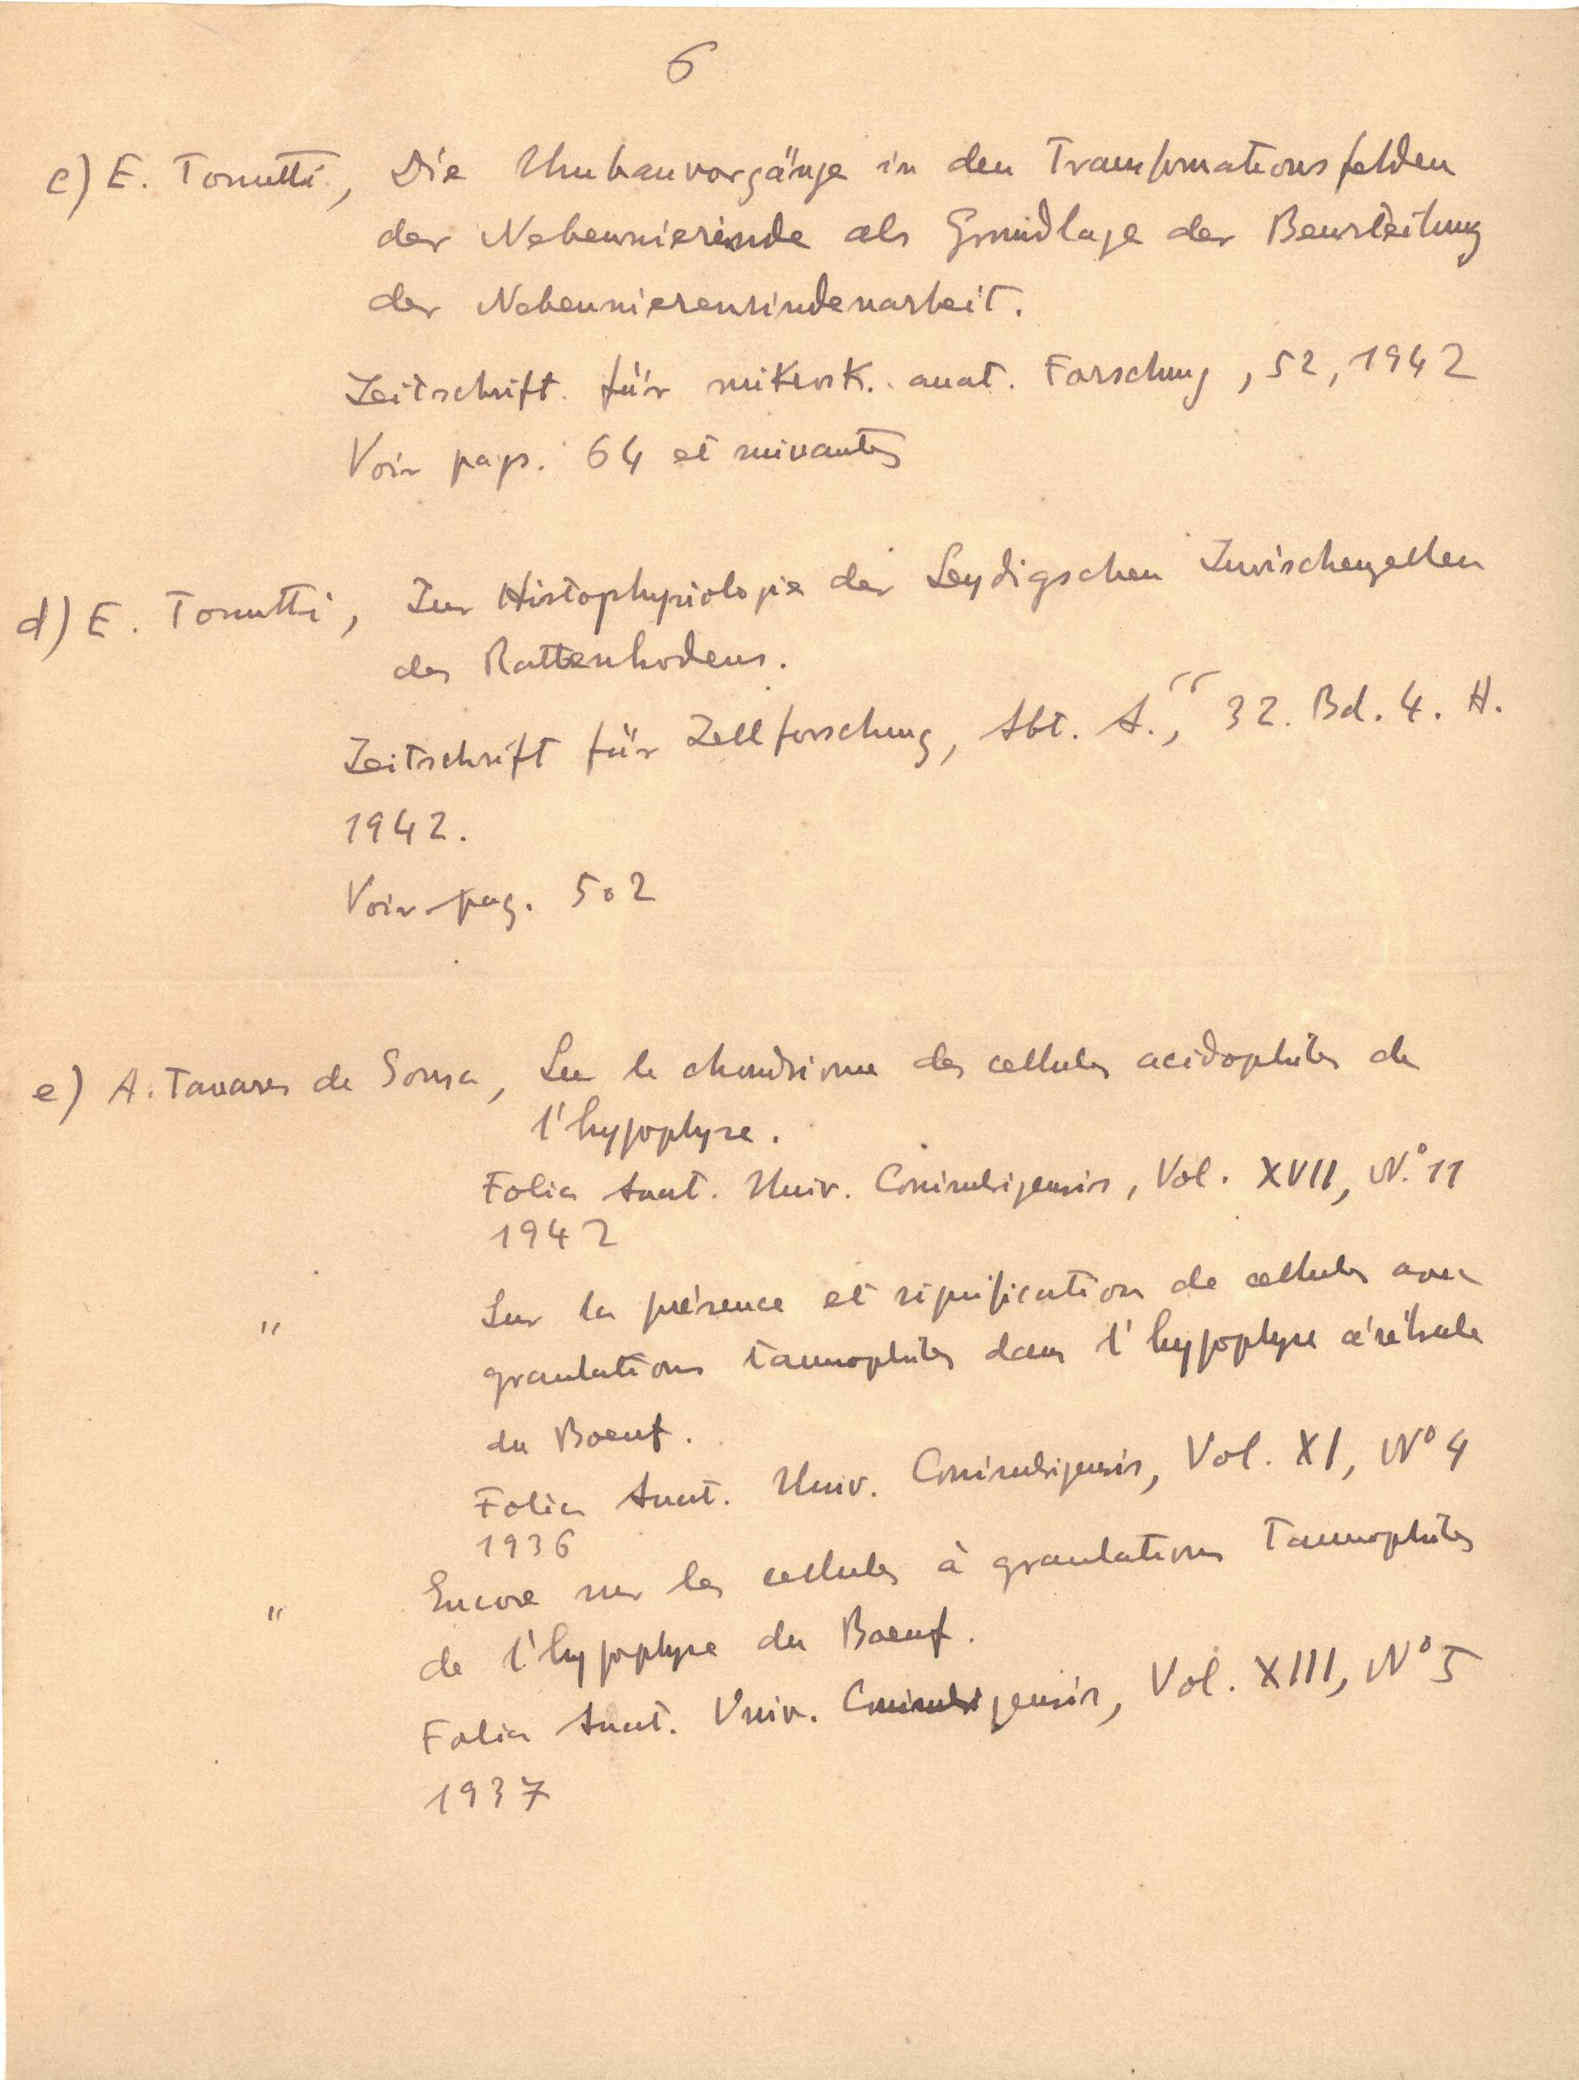 6
c) E. Tonutti, Die Umbauvorgänge in den Transformationsfelden
der Nebennierinde als Grundlage der Beurteilung
der Nebennierenrindenarbeit.
Zeitschrift für mikrosk. anat. Forschung, 52, 1942
Voir pags. 64 et suivantes
d) E. Tonutti, Zur Histophysiologie der Leydigschen Zwischenzellen
des Rattenhodens.
Zeitschrift für Zellforschung, Abt. A.,“ 32. Bd. 4. H.
1942.
Voir pag. 502
e) A. Tavares de Sousa, Sur le chondriome des cellules acidophiles de
l'hypophyse.
Folia Anat. Univ. Conimbrigensis, Vol. XVII, N.º 11
1942
" Sur la présence et signification de cellules avec
granulations tannophiles dans l'hypophyse cérébrale
du Boeuf.
Folia Anat. Univ. Conimbrigensis, Vol. XI, Nº 4
1936
" Encore sur les cellules à granulations tannophiles
de l'hypophyse du Boeuf.
Folia Anat. Univ. Conimbrigensis, Vol. XIII, Nº 5
1937